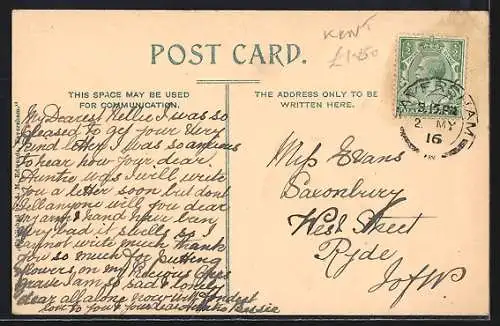 KENT
£1.50
POST CARD.
THIS SPACE MAY BE USED
FOR COMMUNICATION.
THE ADDRESS ONLY TO BE
WRITTEN HERE.
FAVERSHAM
8.15 PM
2 MY
16
My Dearest Nellie I was so
pleased to get your very
kind letter I was so anxious
to hear how your dear
Auntie was I will write
you a letter soon but dont
tell anyone will you dear
my arm & hand have been
very bad it swells so I
cannot write much thank
you so much for putting
flowers, on my Precious Ones
grave I am so sad & lonely
dear all alone now with fondest
love to you & your dear Auntie Bessie
Miss Evans
Saxonbury
West Street
Ryde
I of W